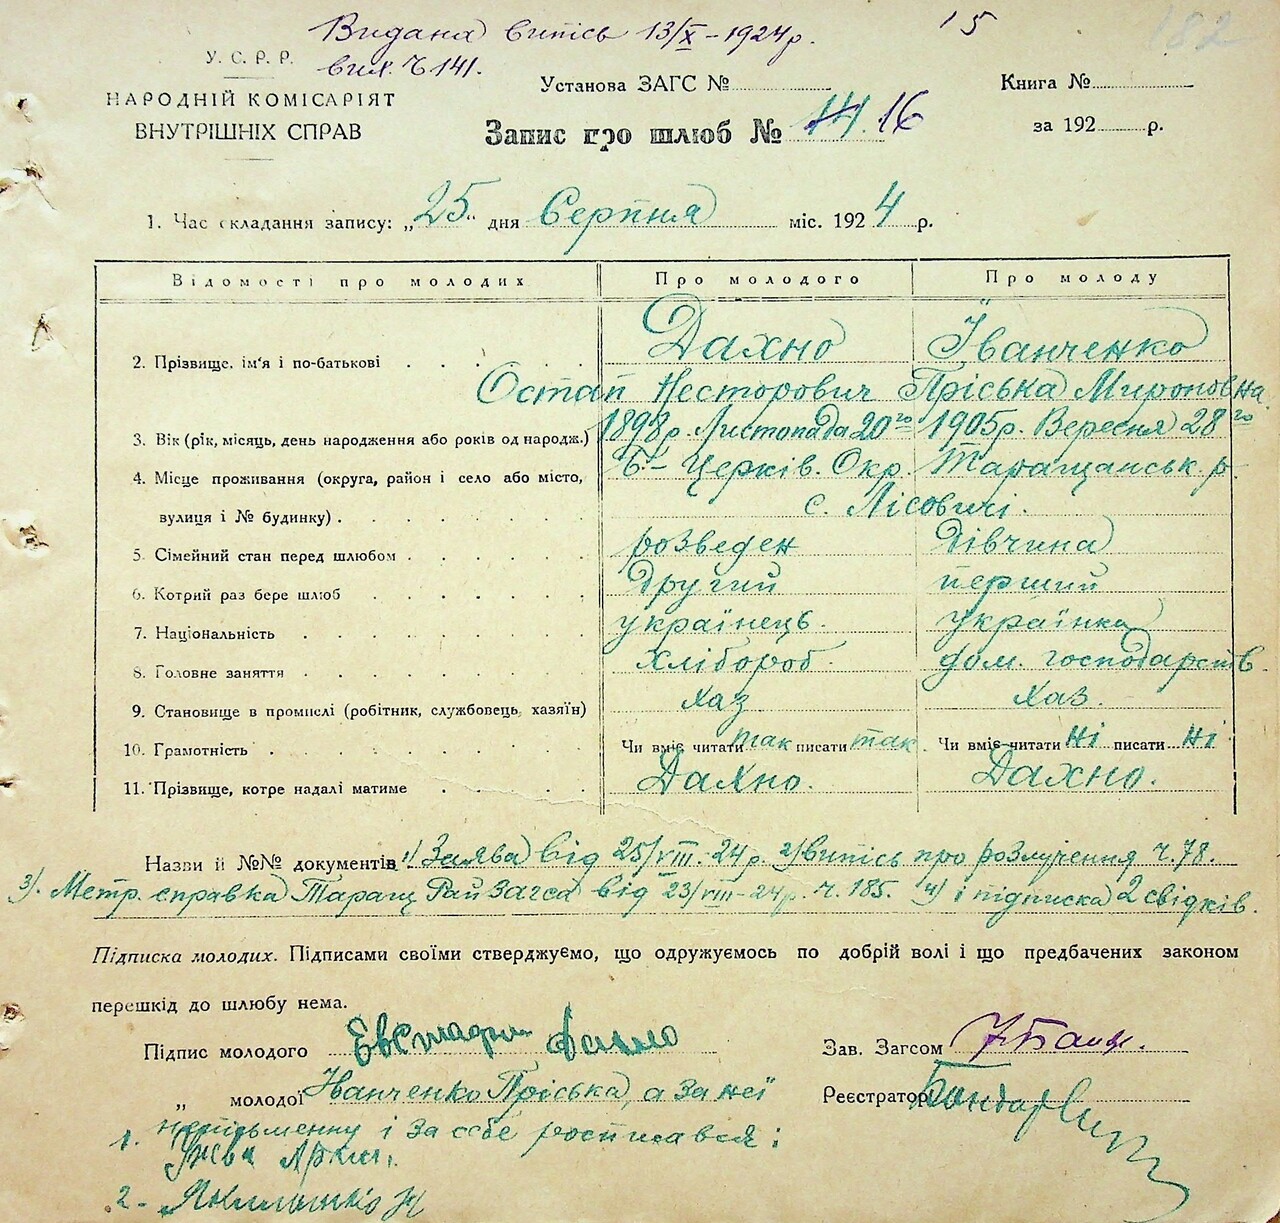 Видана випісь 13/X – 1924 р.
вих. Ч 141.
15
182
У. С. Р. Р.
НАРОДНІЙ КОМІСАРІЯТ
ВНУТРІШНІХ СПРАВ
Установа ЗАГС №
Книга №
Запис про шлюб № 14. 16
за 192 р.
1. Час складання запису: „25" дня Серпня міс. 1924 р.
Відомості про молодих Про молодого Про молоду
2. Прізвище, ім'я і по-батькові Дахно Іванченко
Остап Несторович Пріська Мироновна
3. Вік (рік, місяць, день народження або років од народж.) 1898 р. Листопада 20го 1905 р. Вересня 28го
4. Місце проживання (округа, район і село або місто, Б.-Церків. Окр. Таращанськ. р
вулиця і № будинку). с. Лісовичі.
5. Сімейний стан перед шлюбом розведен дівчина
6. Котрий раз бере шлюб другий перший
7. Національність українець. українка
8. Головне заняття хлібороб. дом. господарств.
9. Становище в промислі (робітник, службовець, хазяїн) хаз хаз.
10. Грамотність Чи вміє читати так писати так. Чи вміє читати ні писати ні
11. Прізвище, котре надалі матиме Дахно. Дахно.
Назви й №№ документів 1) Заява від 25/VIII–24 р. 2) випісь про розлучення ч. 78.
3). Метр. справка Таращ РайЗагса від 23/VIII–24 р. ч. 185. 4) і підписка 2 свідків.
Підписка молодих. Підписами своїми стверджуємо, що одружуємось по добрій волі і що предбачених законом
перешкід до шлюбу нема.
Підпис молодого Дахно
Зав. Загсом
„ молодої Іванченко Пріська, а за неї
Реєстратор
неписьменну і за себе росписався:
1.
2-